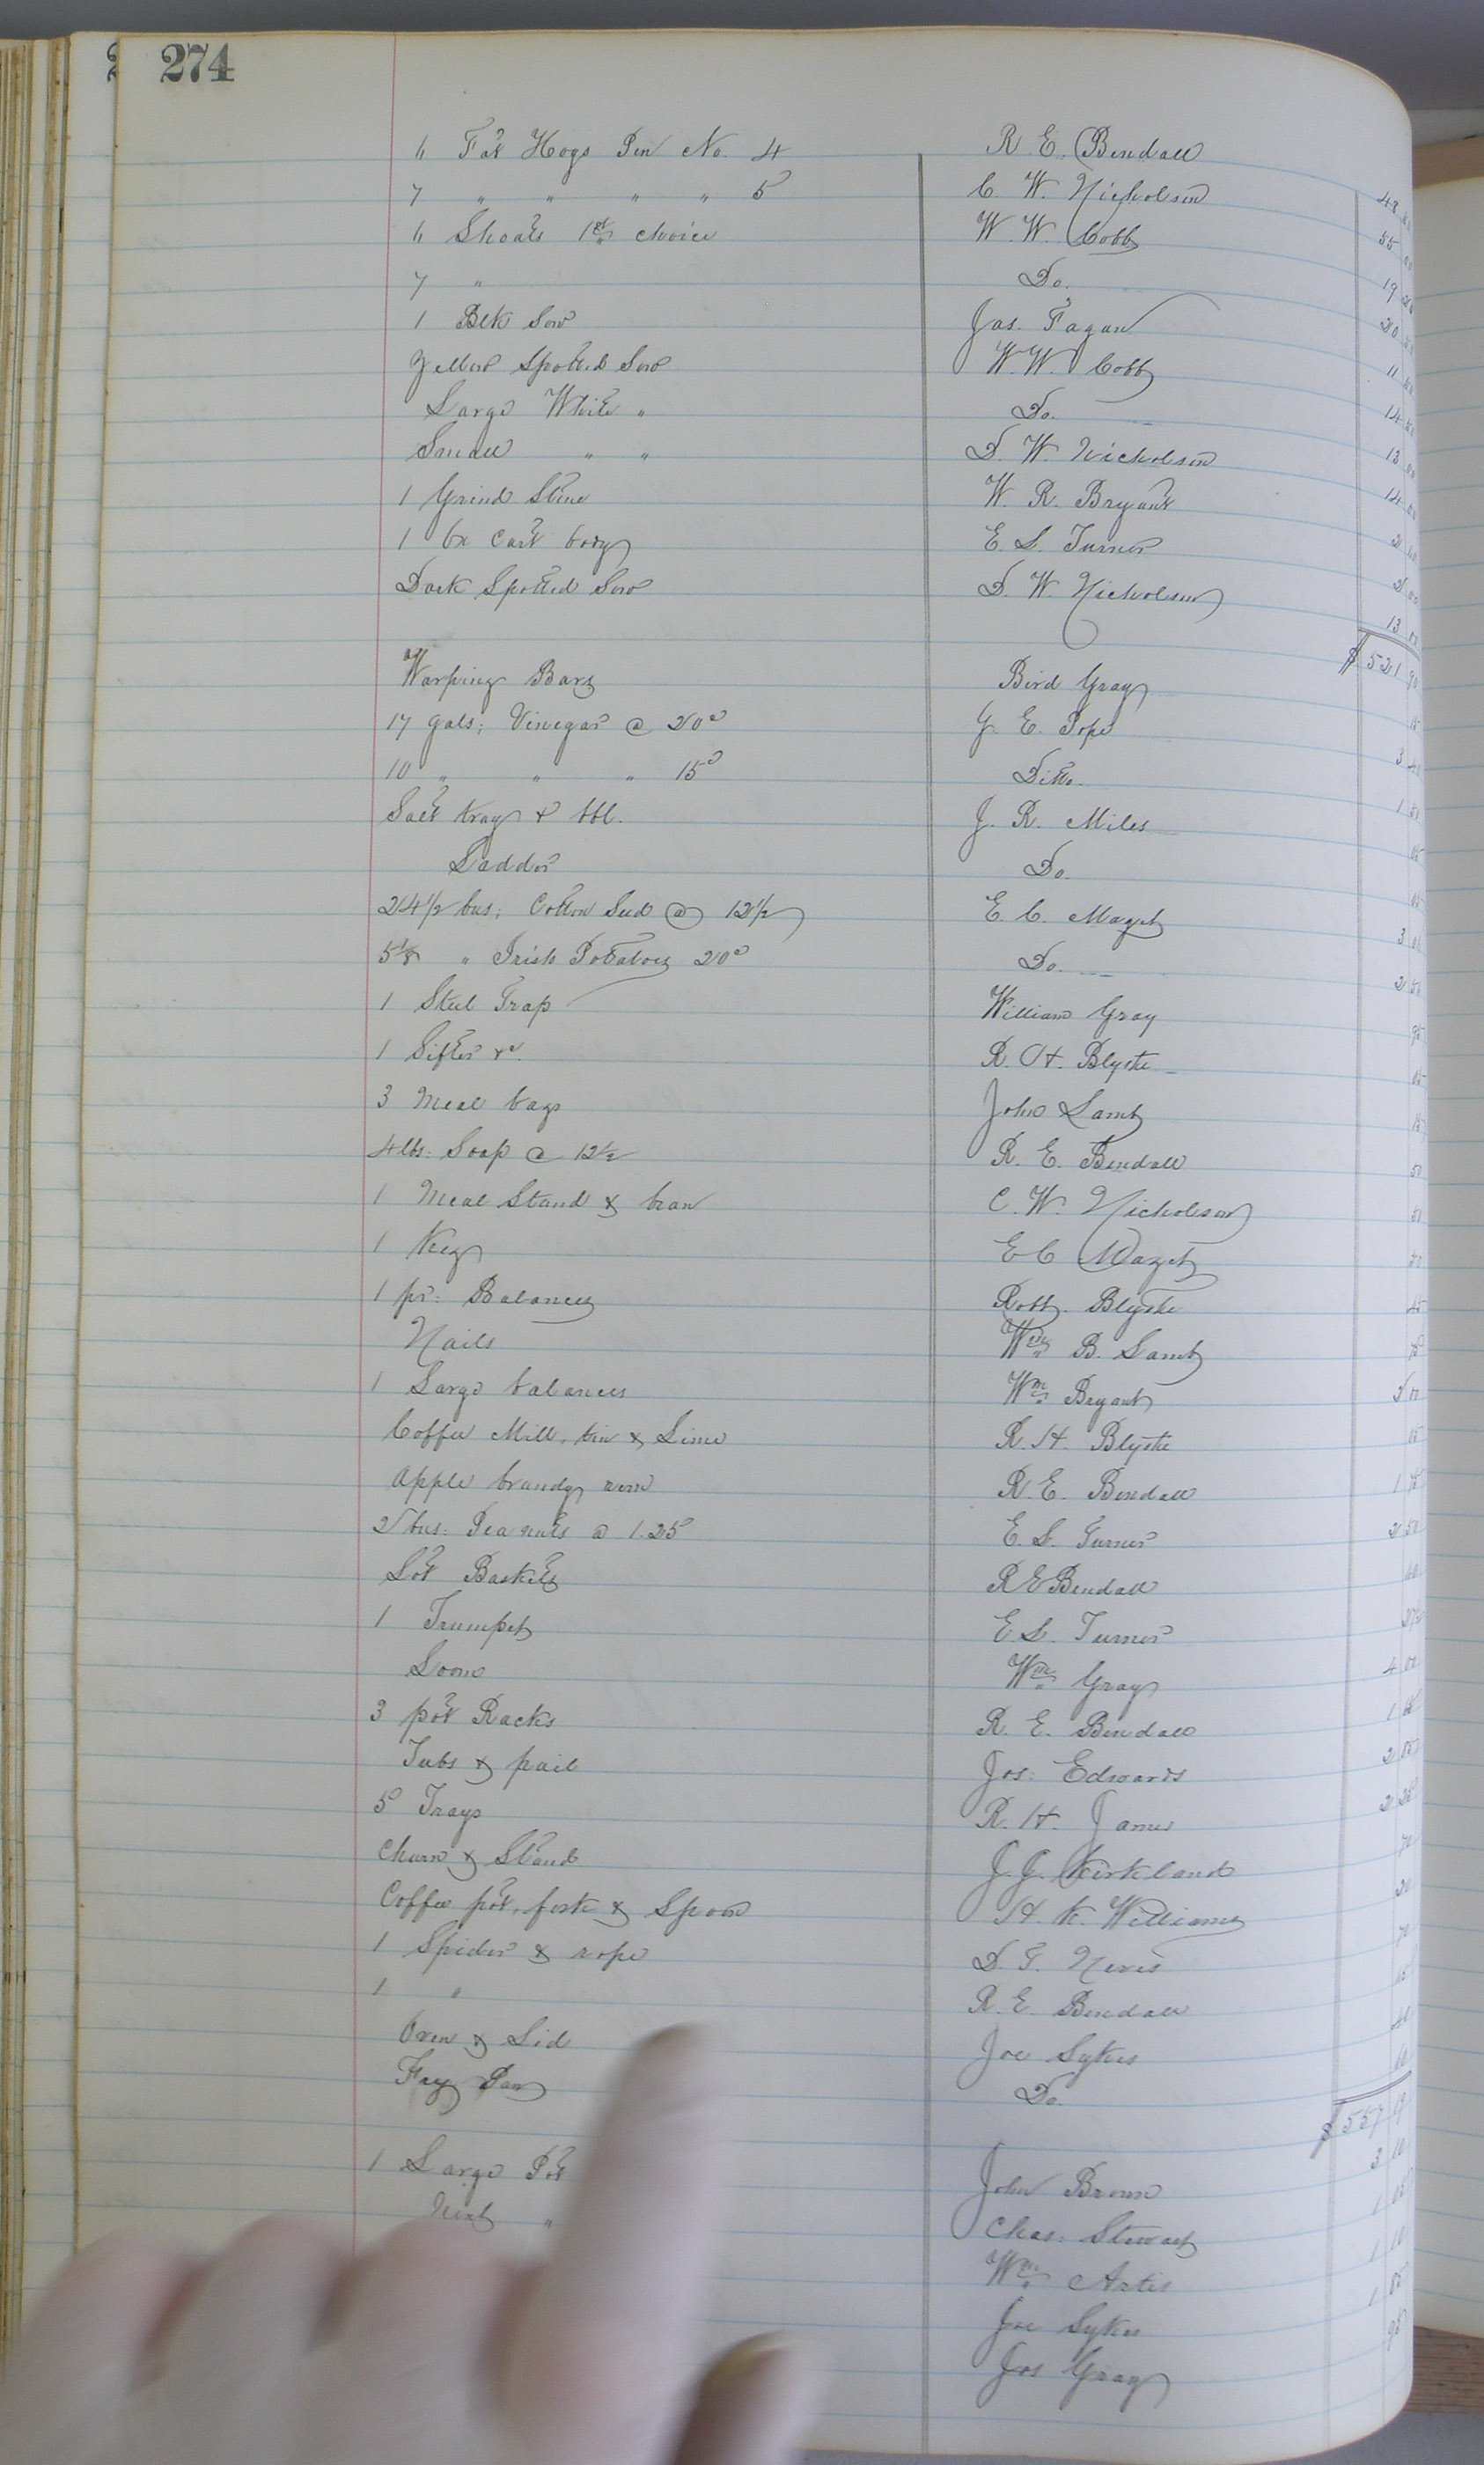 274
6 Fat Hogs Pen No. 4 R. E. Bendall 48
7 " " " " 5 C. W. Nicholson 55 00
6 Shoats 1st choice W. W. Cobb 19
7 " Do. 20
1 Blk Sow Jas. Fagan 11
Yellow Spotted Sow W. W. Cobb 14
Large White " Do. 13 00
Small " " D. W. Nicholson 14 00
1 Grind Stone W. R. Bryant 2
1 Ox Cart body E. S. Turner 2 00
Dark Spotted Sow D. W. Nicholson 13 00
$521 90
Warping Bars Bird Gray 15
17 gals; Vinegar @ 20c G. E. Pope 3 40
10 " " " 15c Ditto. 1 50
Salt tray & bbl. J. R. Miles 05
Ladder Do. 05
24 1/2 bus; Cotton Seed @ 12 1/2 E. C. Maget 3
" Irish Potatoes 20c Do. 2
1 Steel Trap William Gray 95
1 Sifter &c. R. H. Blythe 05
3 Meal bags John Lamb 15
4 lbs. Soap @ 12 1/2 R. E. Bendall 50
1 Meal Stand & bran C. W. Nicholson 50
1 Keg E C Maget
1 pr. Balances Robt. Blythe 45
Nails Wm B. Lamb
1 Large balances Wm Bryant 2
Coffee Mill, tin & Lime R. H. Blythe 05
Apple brandy rem R. E. Bendall 1 75
2 bus. Pea nuts @ 1.25 E. S. Turner 2 50
Lot Baskets R E Bendall
1 Trumpet E. S. Turner
Loom Wm Gray 4 00
3 pot Racks R. E. Bendall 1
Tubs & pail Jos. Edwards 2 05
5 Trays R. H. James 2 25
Churn & Stand J. J. Kirkland 70
Coffee pot, fork & Spoon H. K. Williams 20
1 Spider & rope D. T. 70
1 " R. E. Bendall 15
Oven & Lid Joe Sykes
Fry Pan Do. 10
$557 19
1 Large Pot John Brown 3 10
Next " Chas. Stewart 1 05
Wm Artis 1 10
Joe Sykes 1 05
Jos Gray 95